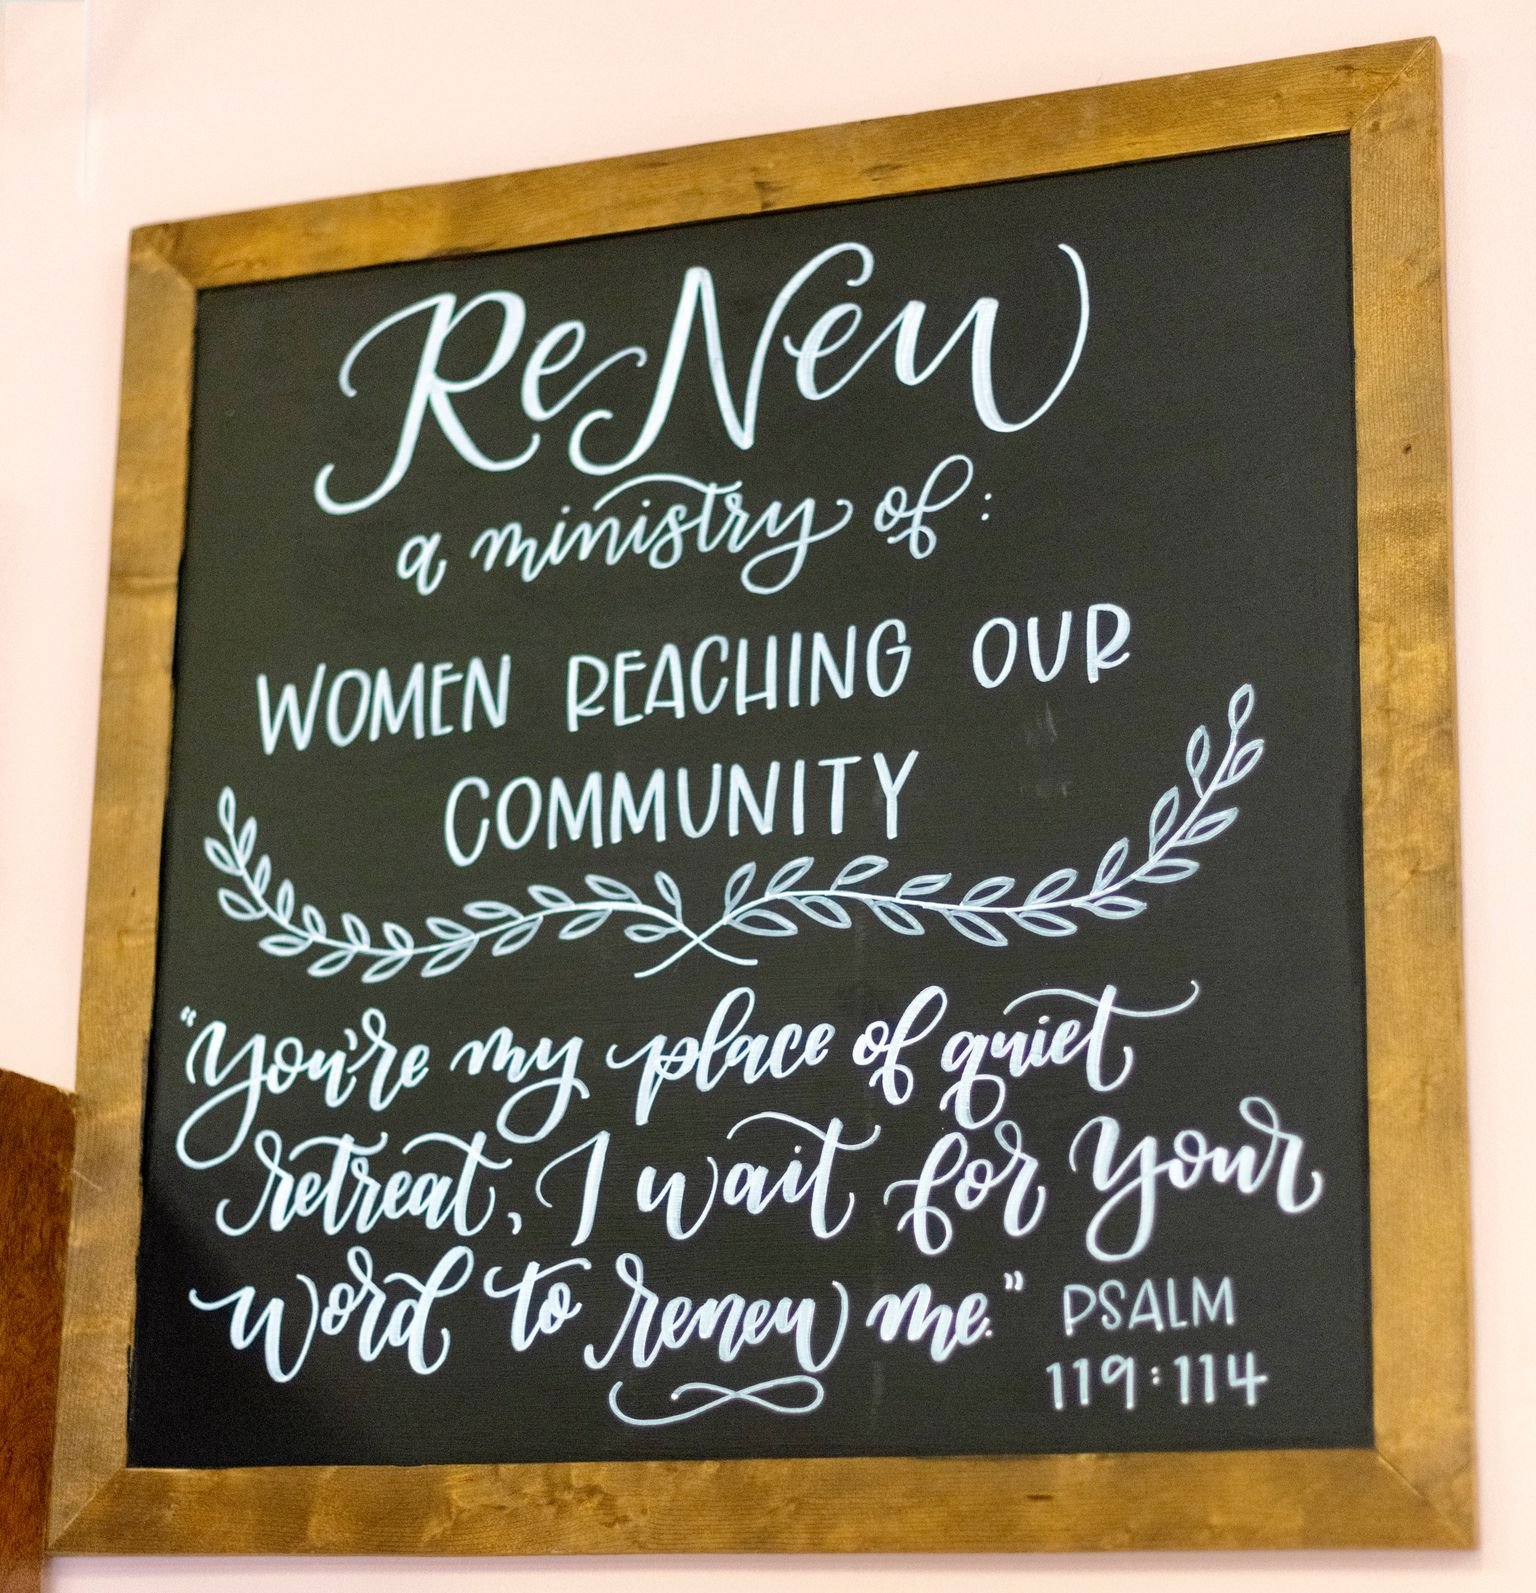 ReNew
a ministry of:
WOMEN REACHING OUR
COMMUNITY
"You're my place of quiet
retreat, I wait for your
word to renew me." PSALM
119:114